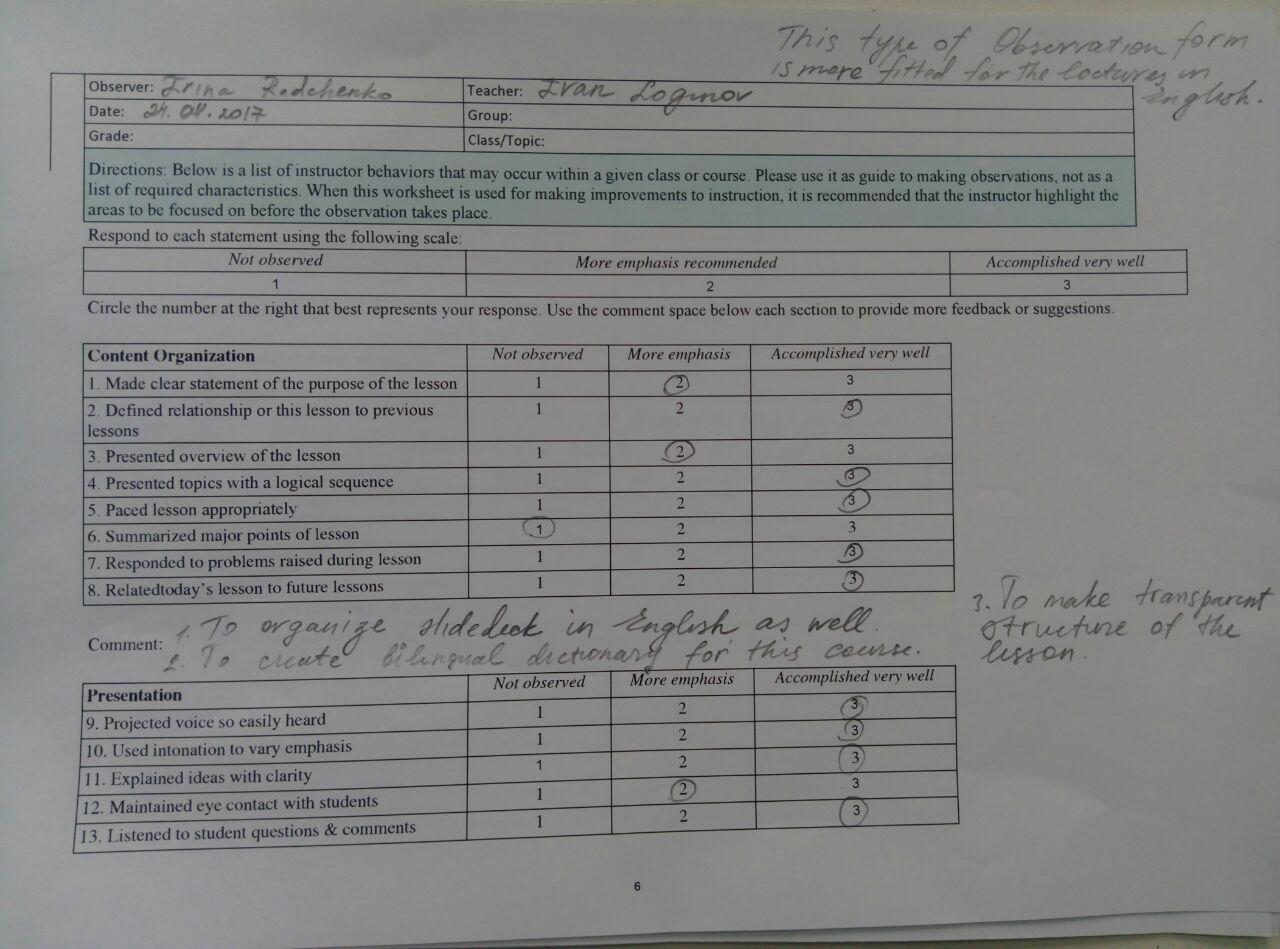 This type of Observation form
is more fitted for the lectures in
English.
Observer: Irina Radchenko
Teacher: Ivan Loginov
Date: 24.04.2017
Group:
Grade:
Class/Topic:
Directions: Below is a list of instructor behaviors that may occur within a given class or course. Please use it as guide to making observations, not as a
list of required characteristics. When this worksheet is used for making improvements to instruction, it is recommended that the instructor highlight the
areas to be focused on before the observation takes place.
Respond to each statement using the following scale:
Not observed More emphasis recommended Accomplished very well
1 2 3
Circle the number at the right that best represents your response. Use the comment space below each section to provide more feedback or suggestions.
Content Organization Not observed More emphasis Accomplished very well
1. Made clear statement of the purpose of the lesson 1 2 3
2. Defined relationship or this lesson to previous 1 2 3
lessons
3. Presented overview of the lesson 1 2 3
4. Presented topics with a logical sequence 1 2 3
5. Paced lesson appropriately 1 2 3
6. Summarized major points of lesson 1 2 3
7. Responded to problems raised during lesson 1 2 3
8. Relatedtoday's lesson to future lessons 1 2 3
Comment: 1. To organize slidedeck in English as well.
2. To create bilingual dictionary for this course.
3. To make transparent
structure of the
lesson.
Presentation Not observed More emphasis Accomplished very well
9. Projected voice so easily heard 1 2 3
10. Used intonation to vary emphasis 1 2 3
11. Explained ideas with clarity 1 2 3
12. Maintained eye contact with students 1 2 3
13. Listened to student questions & comments 1 2 3
6